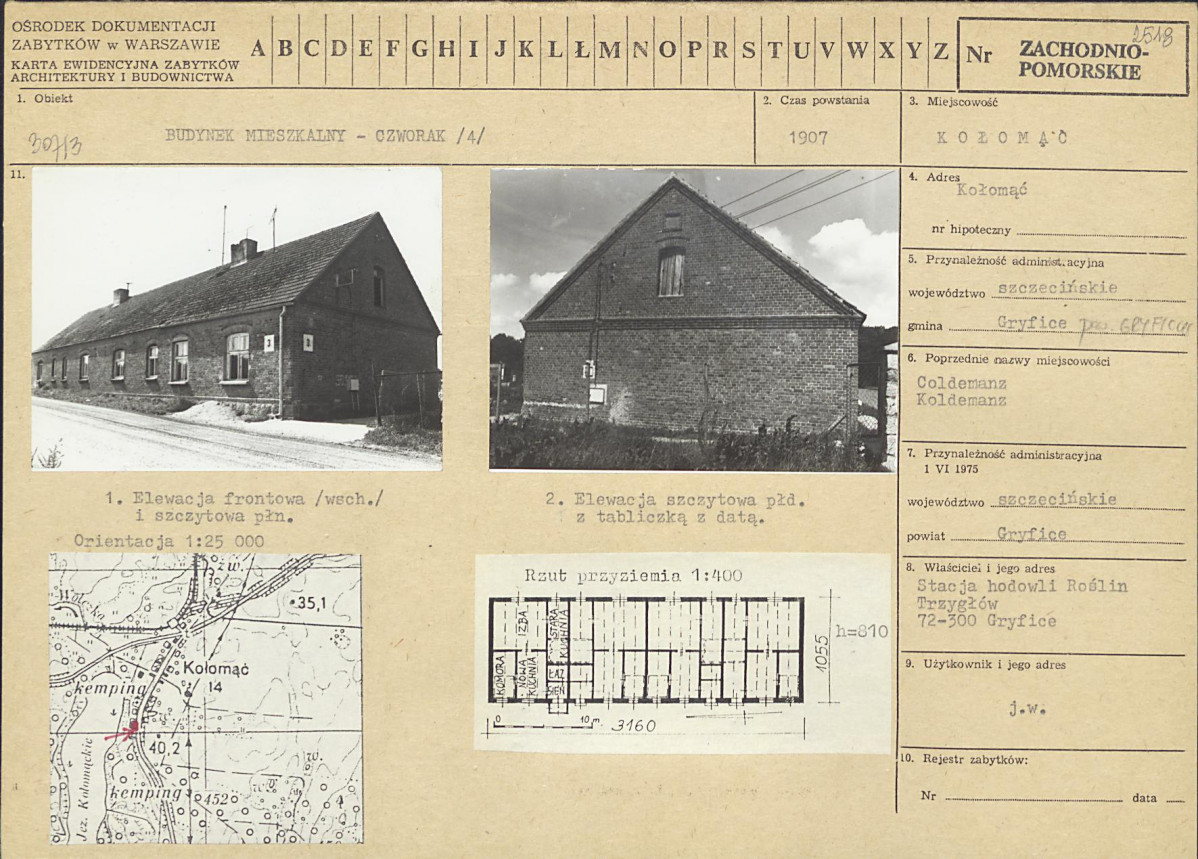 OŚRODEK DOKUMENTACJI
ZABYTKÓW w WARSZAWIE
KARTA EWIDENCYJNA ZABYTKÓW
ARCHITEKTURY I BUDOWNICTWA
A B C D E F G H I J K L Ł M N O P R S T U V W X Y Z
Nr ZACHODNIO-
POMORSKIE
2518
1. Obiekt
BUDYNEK MIESZKALNY - CZWORAK /4/
2. Czas powstania
1907
3. Miejscowość
KOŁOMĄĆ
4. Adres
Kołomąć
nr hipoteczny
5. Przynależność administracyjna
województwo szczecińskie
gmina Gryfice
6. Poprzednie nazwy miejscowości
Coldemanz
Koldemanz
7. Przynależność administracyjna
1 VI 1975
województwo szczecińskie
powiat Gryfice
8. Właściciel i jego adres
Stacja hodowli Roślin
Trzygłów
72-300 Gryfice
9. Użytkownik i jego adres
j.w.
10. Rejestr zabytków:
Nr data
11.
1. Elewacja frontowa /wsch./
i szczytowa płn.
2. Elewacja szczytowa płd.
z tabliczką z datą.
Orientacja 1:25 000
żw.
35,1
Kołomąć
14
kemping
40,2
Jez. Kołomąckie
kemping
452
w.
w.
Rzut przyziemia 1:400
IZBA
STARA
KUCHNIA
KOMORA
NOWA
KUCHNIA
ŁAZ
SIEŃ
1055
h=810
0 10 m
3160